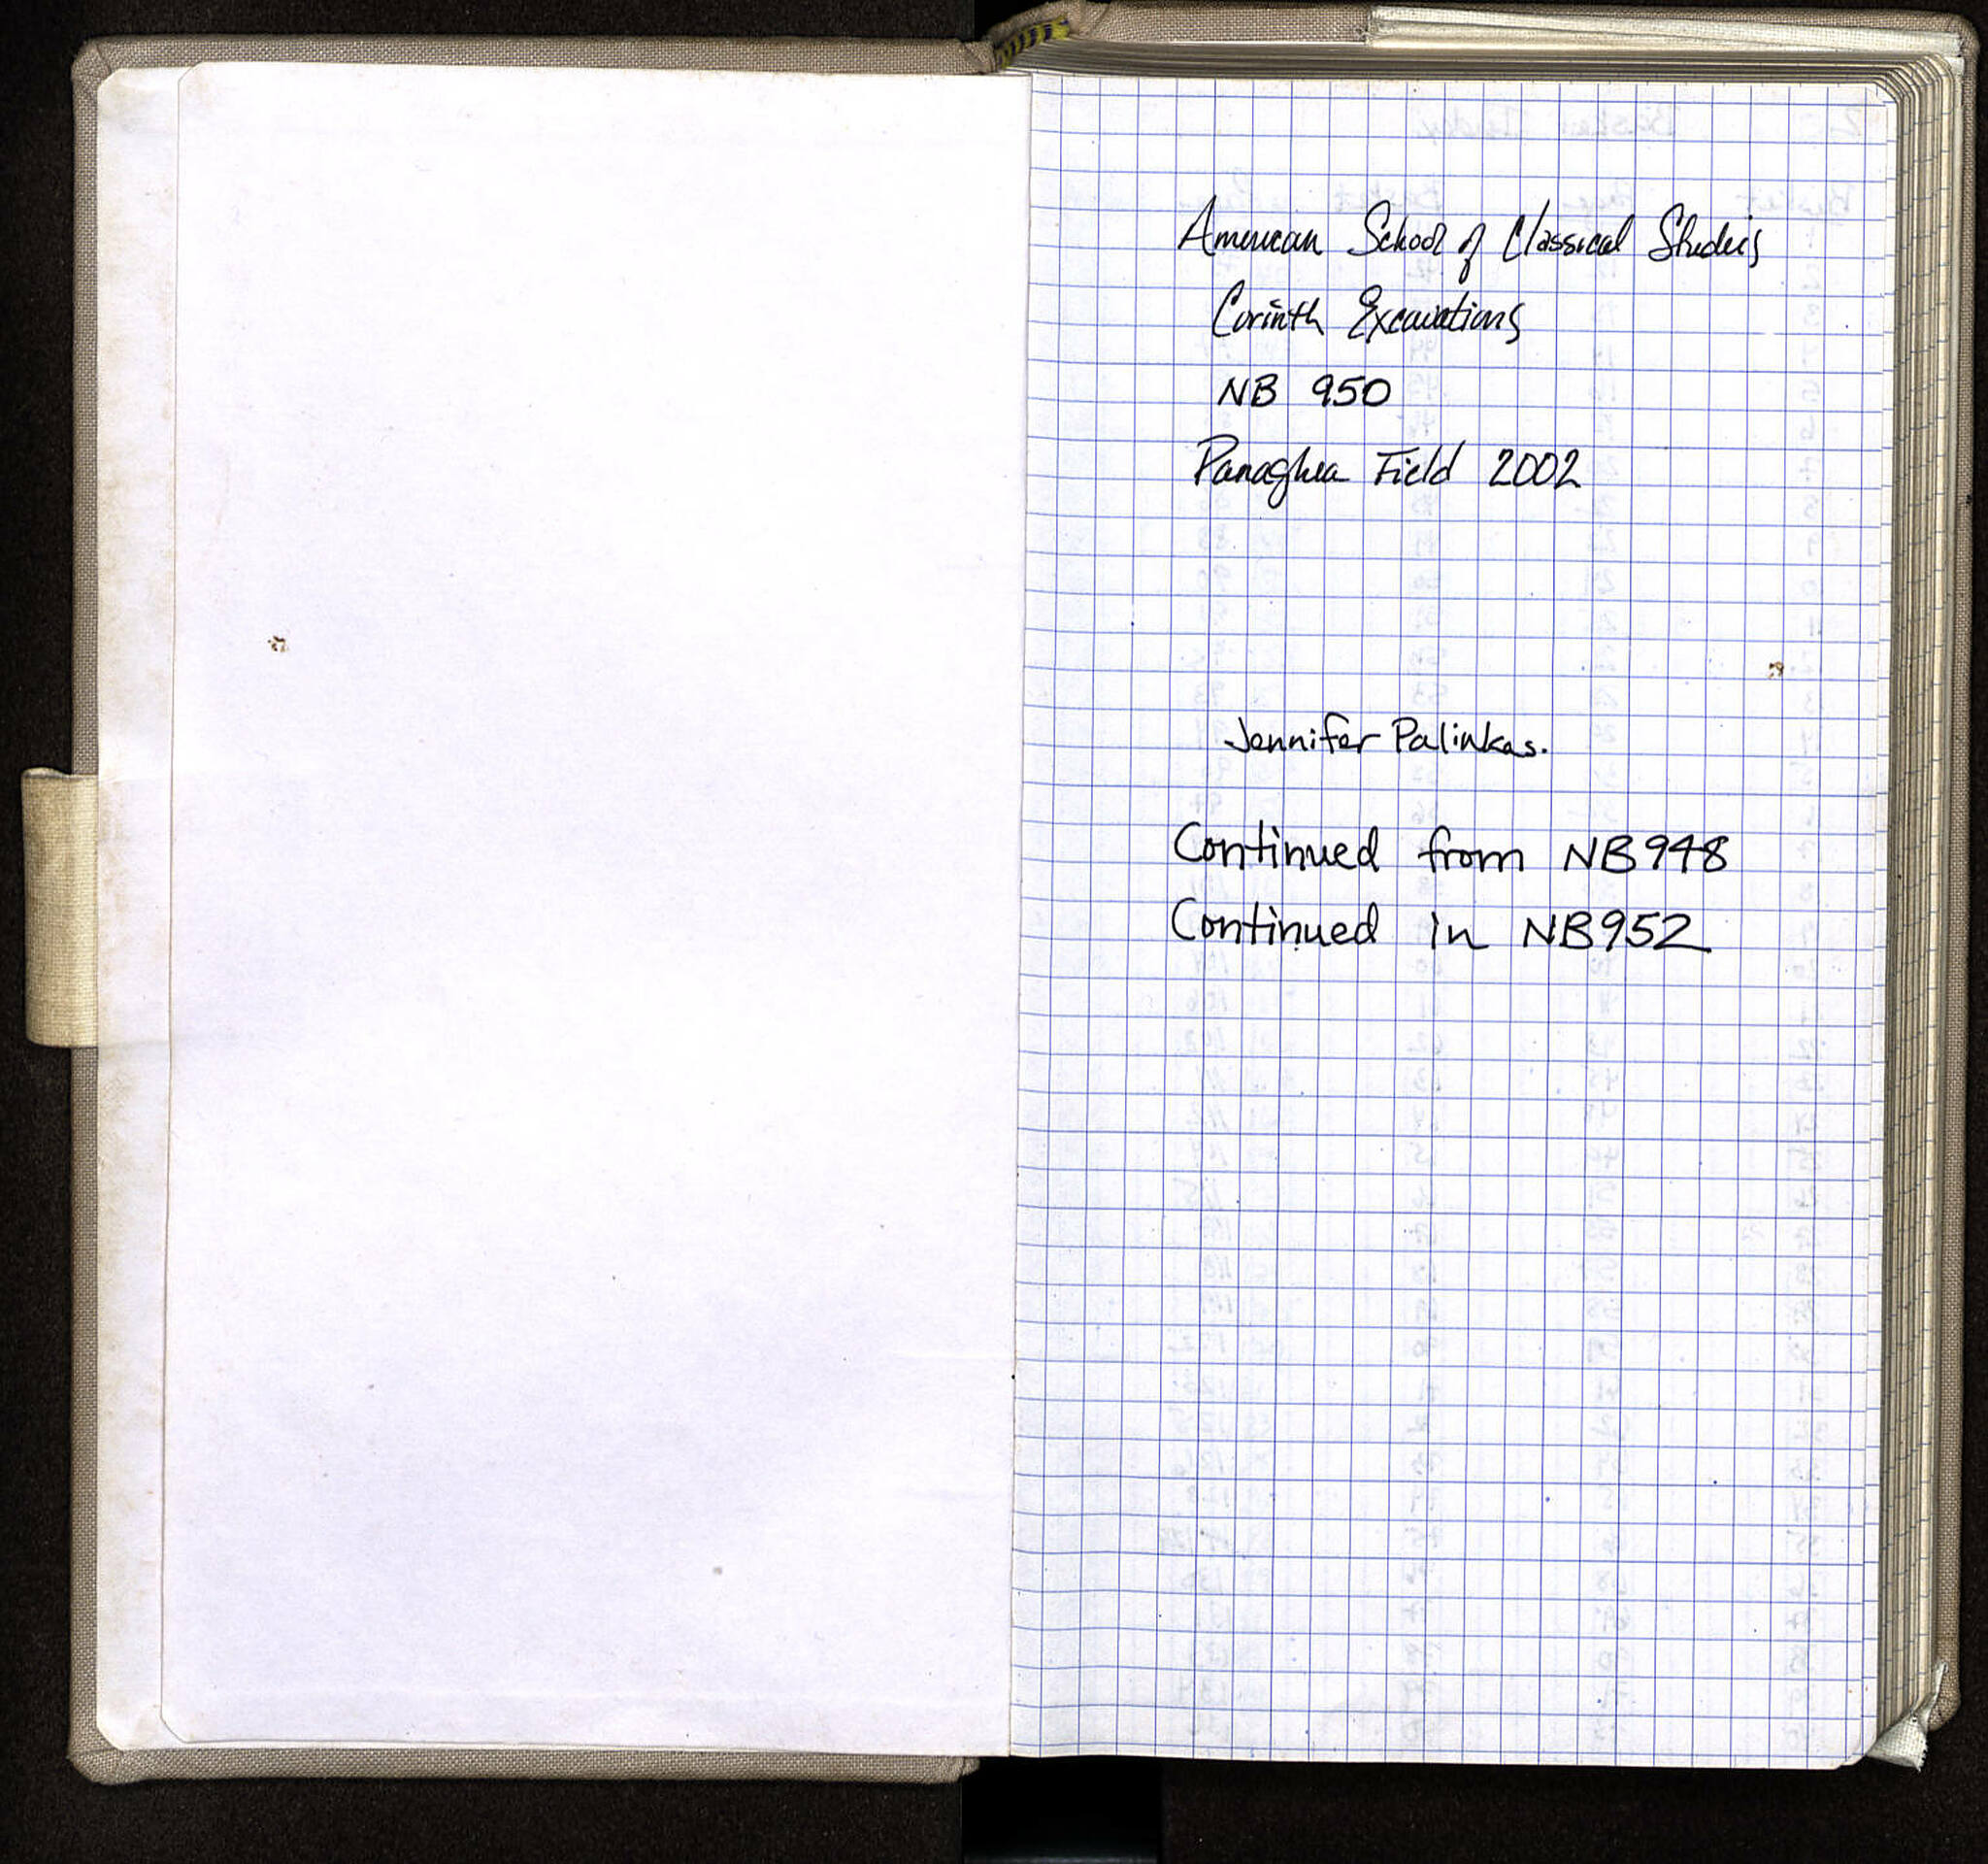 American School of Classical Studies
Corinth Excavations
NB 950
Panaghia Field 2002
Jennifer Palinkas.
Continued from NB948
Continued in NB952